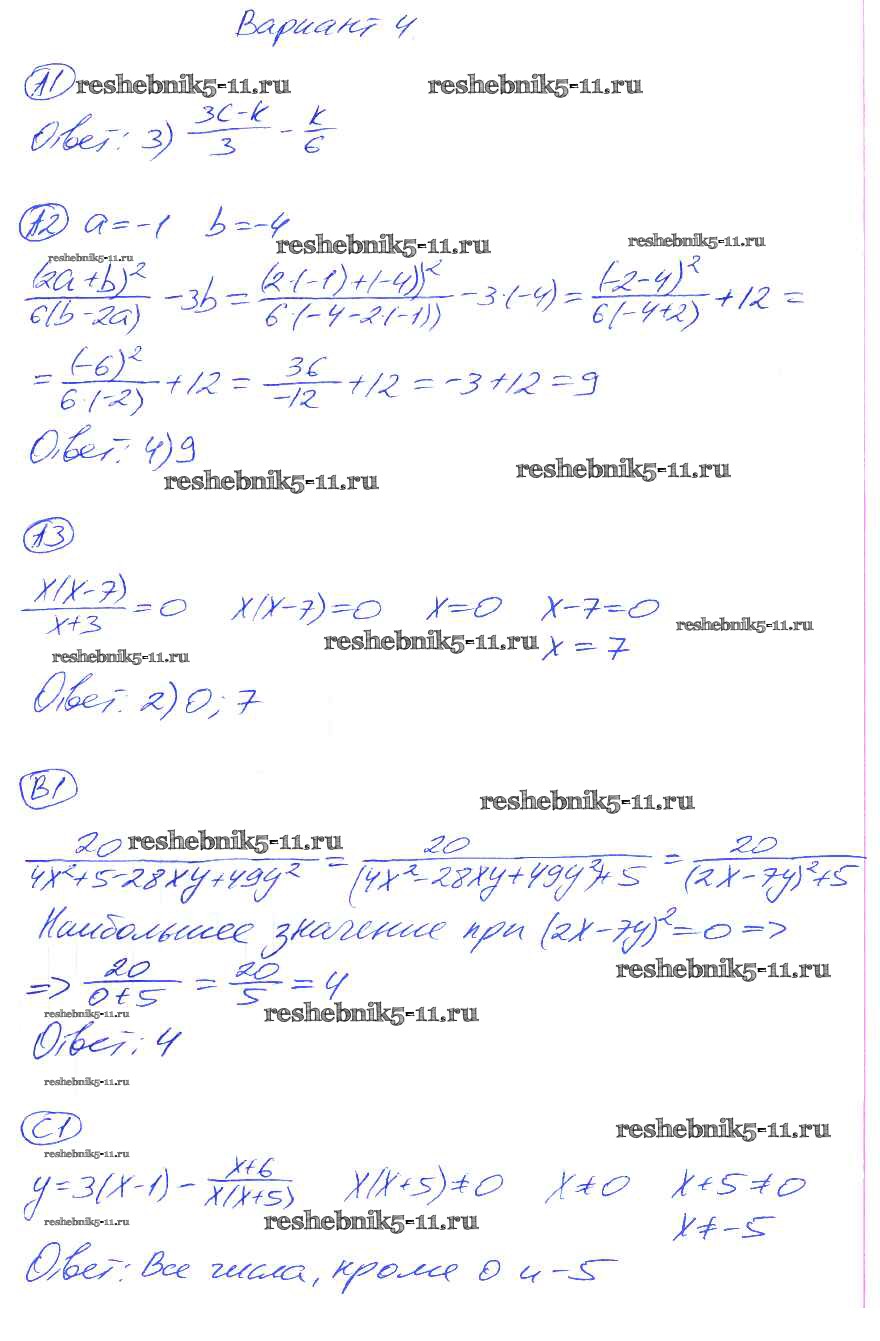 Вариант 4
А1 reshebnik5-11.ru reshebnik5-11.ru
Ответ: 3) (3c-k)/3 - k/6
А2 a=-1 b=-4
reshebnik5-11.ru reshebnik5-11.ru
reshebnik5-11.ru
(2a+b)²/6(b-2a) -3b = (2·(-1)+(-4))²/6·(-4-2·(-1)) -3·(-4) = (-2-4)²/6(-4+2) +12 =
= (-6)²/6·(-2) +12 = 36/-12 +12 = -3+12 = 9
Ответ: 4) 9
reshebnik5-11.ru reshebnik5-11.ru
А3
x(x-7)/x+3 = 0 x(x-7)=0 x=0 x-7=0
reshebnik5-11.ru
reshebnik5-11.ru reshebnik5-11.ru x = 7
Ответ: 2) 0; 7
В1
reshebnik5-11.ru
reshebnik5-11.ru
20/4x²+5-28xy+49y² = 20/(4x²-28xy+49y²)+5 = 20/(2x-7y)²+5
Наибольшее значение при (2x-7y)²=0 =>
=> 20/0+5 = 20/5 = 4
reshebnik5-11.ru
reshebnik5-11.ru reshebnik5-11.ru
Ответ: 4
reshebnik5-11.ru
С1
reshebnik5-11.ru
reshebnik5-11.ru
y=3(x-1) - x+6/x(x+5) x(x+5)≠0 x≠0 x+5≠0
reshebnik5-11.ru reshebnik5-11.ru x≠-5
Ответ: Все числа, кроме 0 и -5